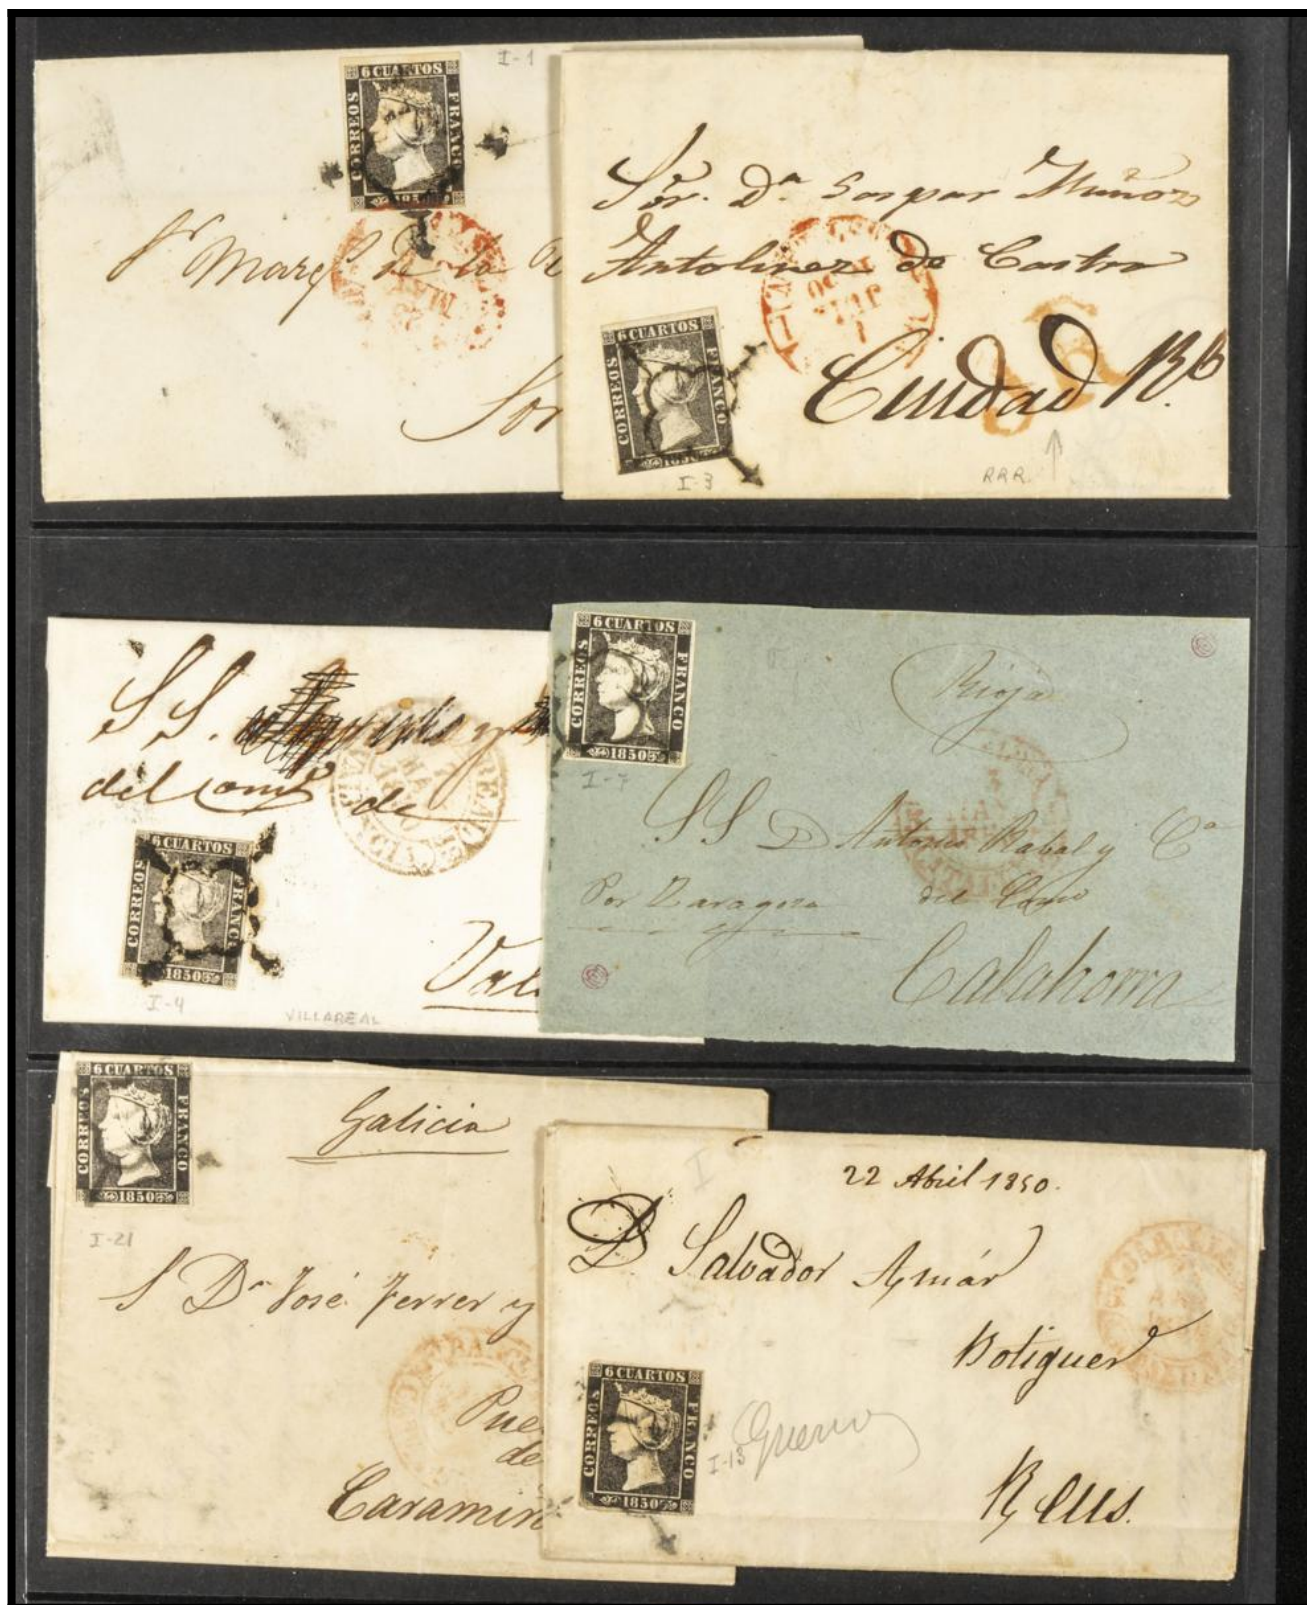 I-1
6 CUARTOS
CORREOS
FRANCO
Sr Marqs de la R
Sor
Sor. Dn Gaspar Muñoz
Antolinez de Castro
Ciudad Rl
1
JUL
6 CUARTOS
CORREOS
FRANCO
1850
I-3
RRR.
SS.
del Comº de
6 CUARTOS
CORREOS
FRANCO
1850
I-4
VILLAREAL
Val
6 CUARTOS
CORREOS
FRANCO
1850
I-7
Rioja
SS D Antonio Rabal y Ca
Por Zaragoza del Como
Calahorra
6 CUARTOS
CORREOS
FRANCO
1850
I-21
Galicia
S Dn José Ferrer y
Pue
de
Caramiñ
22 Abril 1850.
D Salvador Aymár
Botiguer
Reus.
6 CUARTOS
CORREOS
FRANCO
1850
I-13